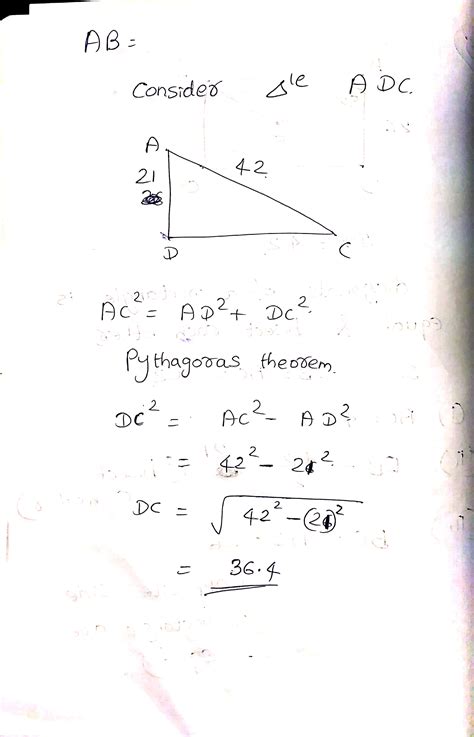 AB =
Consider Δ'le ADC.
A
21
42
D
C
AC² = AD² + DC².
Pythagoras theorem.
DC² = AC² - AD²
= 42² - 21².
DC = √42² - (21)²
= 36.4